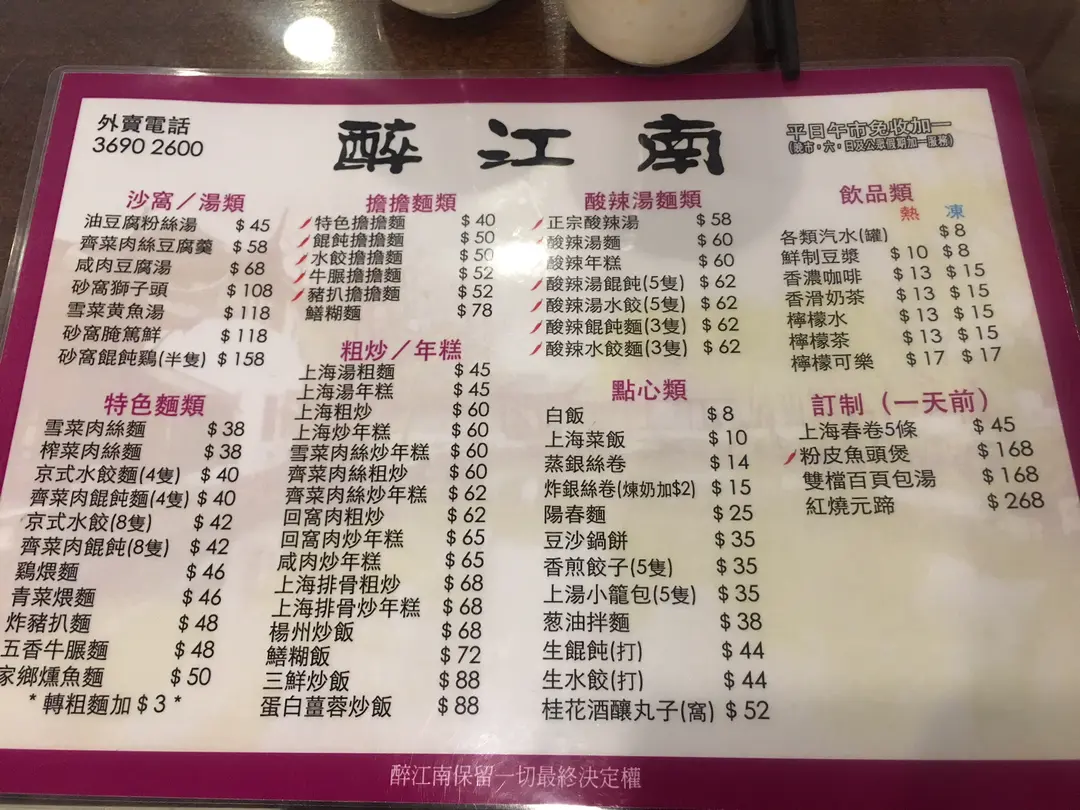 外賣電話
3690 2600
醉江南
平日午市免收加一
(晚市，六，日及公眾假期加一服務)
沙窩／湯類
油豆腐粉絲湯 $45
齊菜肉絲豆腐羹 $58
咸肉豆腐湯 $68
砂窩獅子頭 $108
雪菜黄魚湯 $118
砂窩腌篤鮮 $118
砂窩餛飩鷄(半隻) $158
特色麵類
雪菜肉絲麵 $38
榨菜肉絲麵 $38
京式水餃麵(4隻) $40
齊菜肉餛飩麵(4隻) $40
京式水餃(8隻) $42
齊菜肉餛飩(8隻) $42
鷄煨麵 $46
青菜煨麵 $46
炸豬扒麵 $48
五香牛𦟌麵 $48
家鄉燻魚麵 $50
*轉粗麵加$3*
擔擔麵類
特色擔擔麵 $40
餛飩擔擔麵 $50
水餃擔擔麵 $50
牛𦟌擔擔麵 $52
豬扒擔擔麵 $52
鱔糊麵 $78
粗炒／年糕
上海湯粗麵 $45
上海湯年糕 $45
上海粗炒 $60
上海炒年糕 $60
雪菜肉絲炒年糕 $60
齊菜肉絲粗炒 $60
齊菜肉絲炒年糕 $62
回窩肉粗炒 $62
回窩肉炒年糕 $65
咸肉炒年糕 $65
上海排骨粗炒 $68
上海排骨炒年糕 $68
楊州炒飯 $68
鱔糊飯 $72
三鮮炒飯 $88
蛋白薑蓉炒飯 $88
酸辣湯麵類
正宗酸辣湯 $58
酸辣湯麵 $60
酸辣年糕 $60
酸辣湯餛飩(5隻) $62
酸辣湯水餃(5隻) $62
酸辣餛飩麵(3隻) $62
酸辣水餃麵(3隻) $62
點心類
白飯 $8
上海菜飯 $10
蒸銀絲卷 $14
炸銀絲卷(煉奶加$2) $15
陽春麵 $25
豆沙鍋餅 $35
香煎餃子(5隻) $35
上湯小籠包(5隻) $35
葱油拌麵 $38
生餛飩(打) $44
生水餃(打) $44
桂花酒釀丸子(窩) $52
飲品類
熱 凍
各類汽水(罐) $8
鮮制豆漿 $10 $8
香濃咖啡 $13 $15
香滑奶茶 $13 $15
檸檬水 $13 $15
檸檬茶 $13 $15
檸檬可樂 $17 $17
訂制（一天前）
上海春卷5條 $45
粉皮魚頭煲 $168
雙檔百頁包湯 $168
紅燒元蹄 $268
醉江南保留一切最終決定權